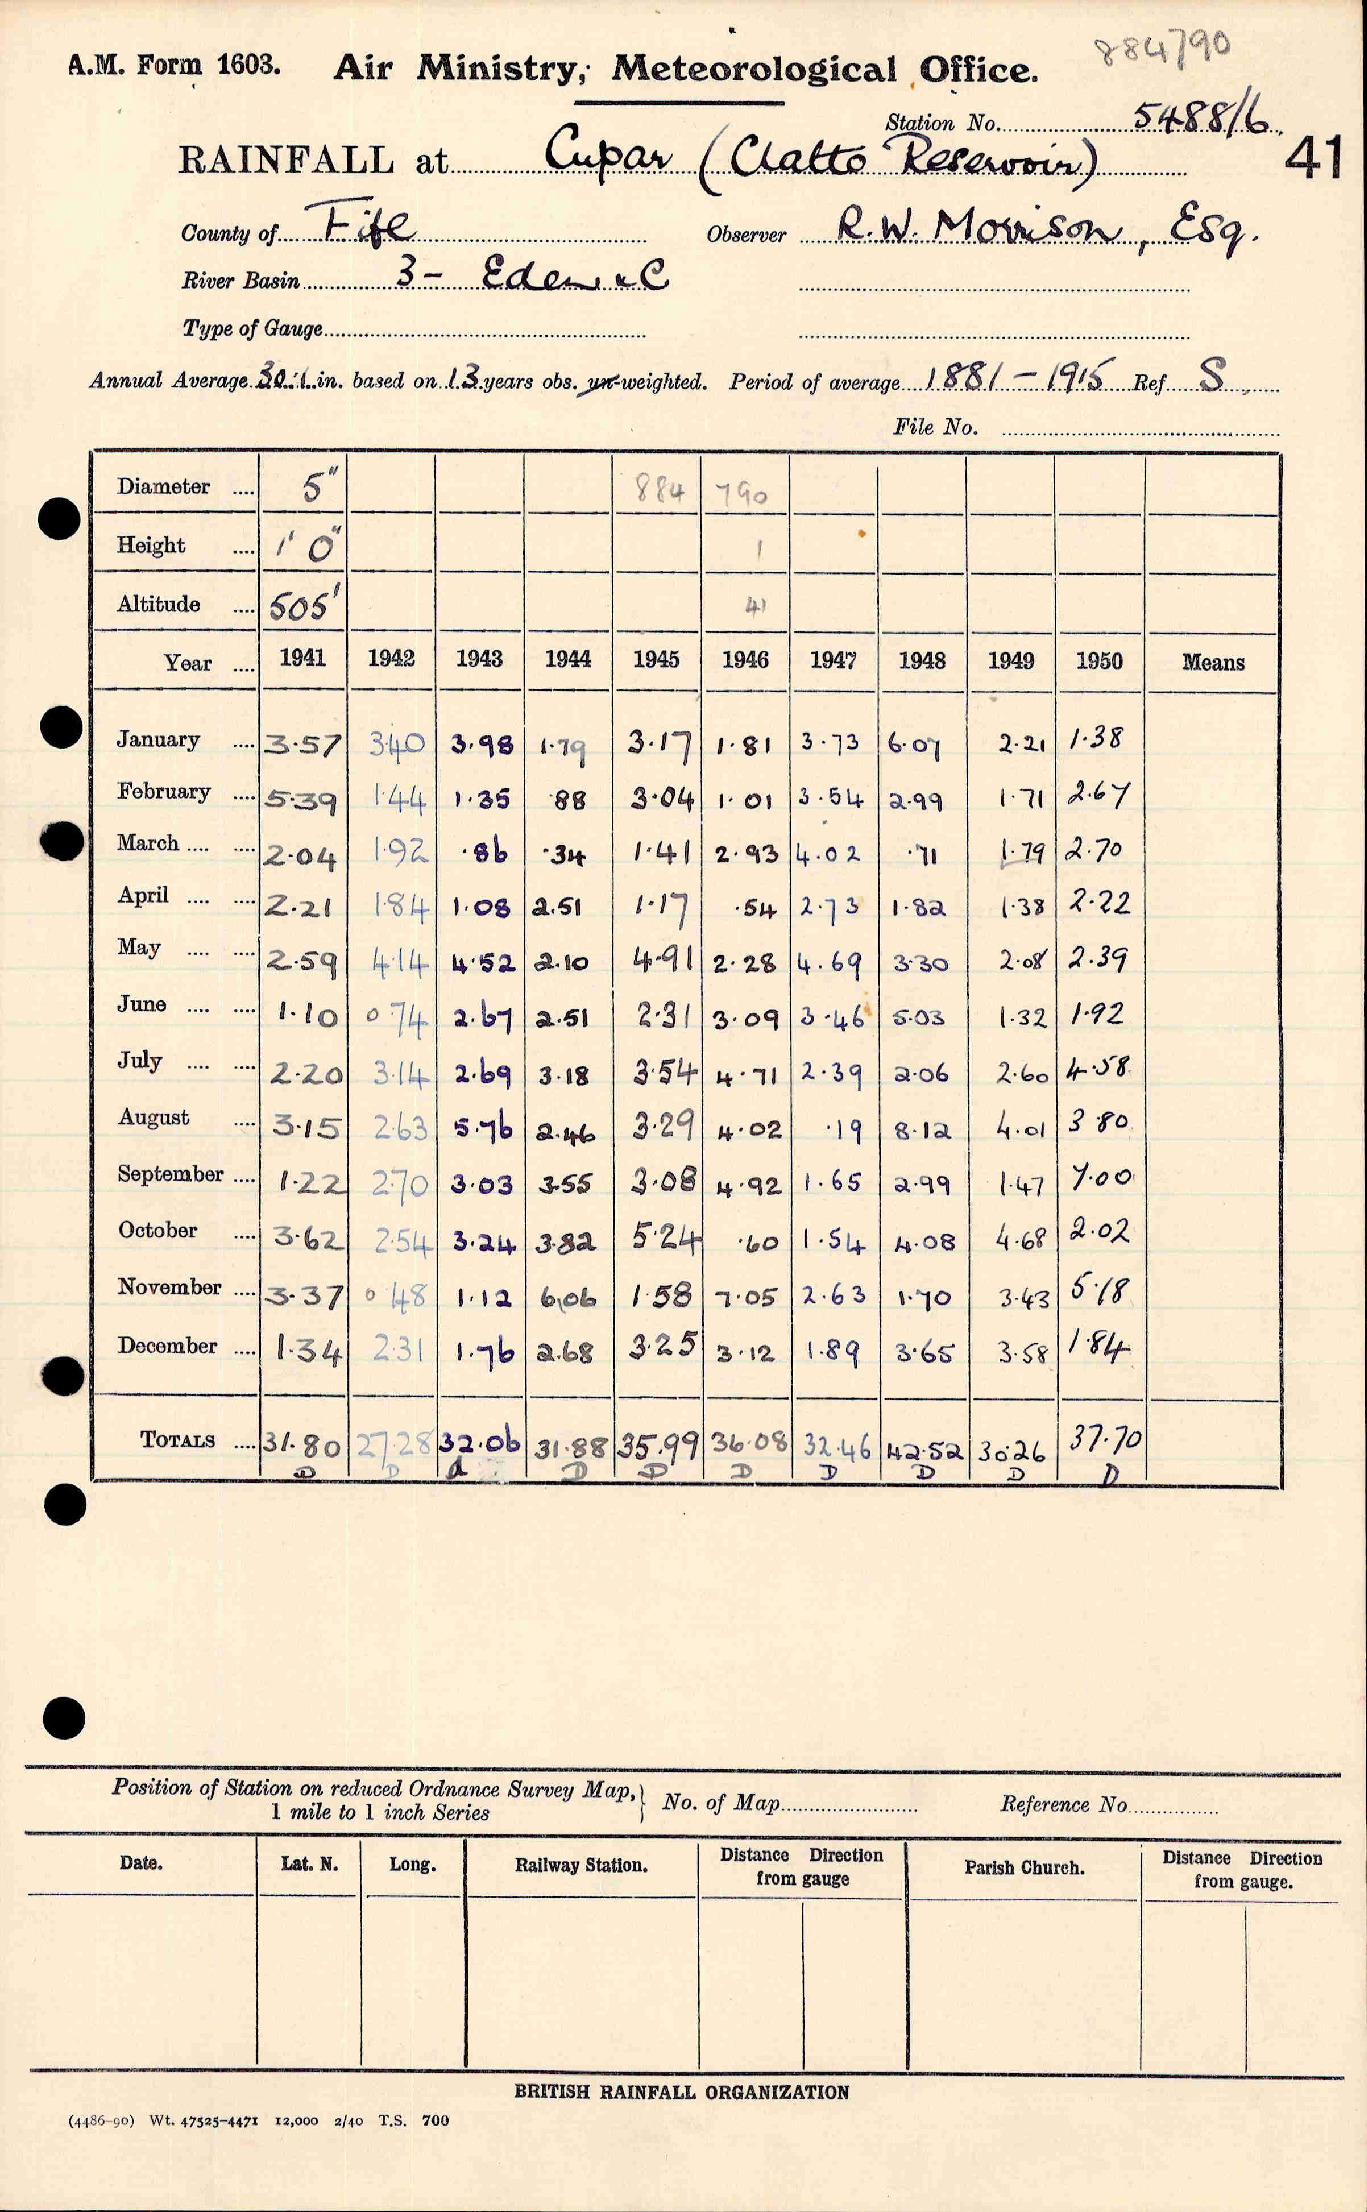 884/90
A.M. Form 1603. Air Ministry, Meteorological Office.
Station No. 5488/6
RAINFALL at Cupar (Clatto Reservoir) 41
County of Fife Observer R.W. Morrison, Esq.
River Basin 3 - Eden &C
Type of Gauge
Annual Average 30.1 in. based on 13 years obs. un-weighted. Period of average 1881-1915 Ref S
File No.
Diameter 5" 884 790
Height 1' 0" 1
Altitude 505' 41
Year 1941 1942 1943 1944 1945 1946 1947 1948 1949 1950 Means
January 3.57 3.40 3.98 1.79 3.17 1.81 3.73 6.07 2.21 1.38
February 5.39 1.44 1.35 .88 3.04 1.01 3.54 2.99 1.71 2.67
March 2.04 1.92 .86 .34 1.41 2.93 4.02 .71 1.79 2.70
April 2.21 1.84 1.08 2.51 1.17 .54 2.73 1.82 1.38 2.22
May 2.59 4.14 4.52 2.10 4.91 2.28 4.69 3.30 2.08 2.39
June 1.10 0.74 2.67 2.51 2.31 3.09 3.46 5.03 1.32 1.92
July 2.20 3.14 2.69 3.18 3.54 4.71 2.39 2.06 2.60 4.58
August 3.15 2.63 5.76 2.46 3.29 4.02 .19 8.12 4.01 3.80
September 1.22 2.70 3.03 3.55 3.08 4.92 1.65 2.99 1.47 7.00
October 3.62 2.54 3.24 3.82 5.24 .60 1.54 4.08 4.68 2.02
November 3.37 0.48 1.12 6.06 1.58 7.05 2.63 1.70 3.43 5.18
December 1.34 2.31 1.76 2.68 3.25 3.12 1.89 3.65 3.58 1.84
TOTALS 31.80 27.28 32.06 31.88 35.99 36.08 32.46 42.52 30.26 37.70
D D d D D D D D D D
Position of Station on reduced Ordnance Survey Map, } No. of Map Reference No
1 mile to 1 inch Series
Date. Lat. N. Long. Railway Station. Distance from gauge Direction Parish Church. Distance from gauge. Direction
BRITISH RAINFALL ORGANIZATION
(4486-90) Wt. 47525-4471 12,000 2/40 T.S. 700